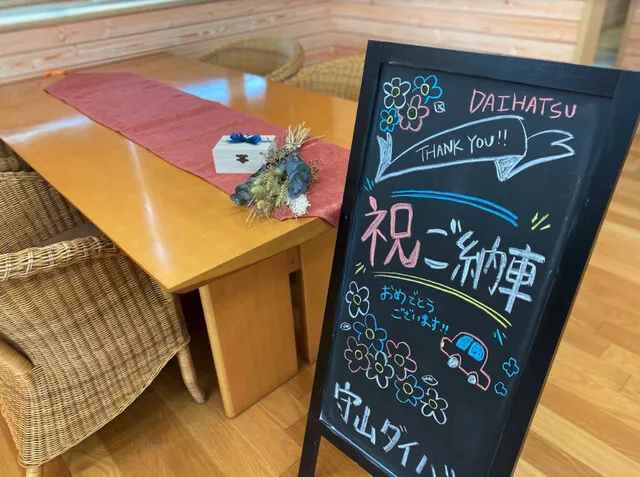 DAIHATSU
THANK YOU!!
祝ご納車
おめでとう
ございます!!
守山ダイハ